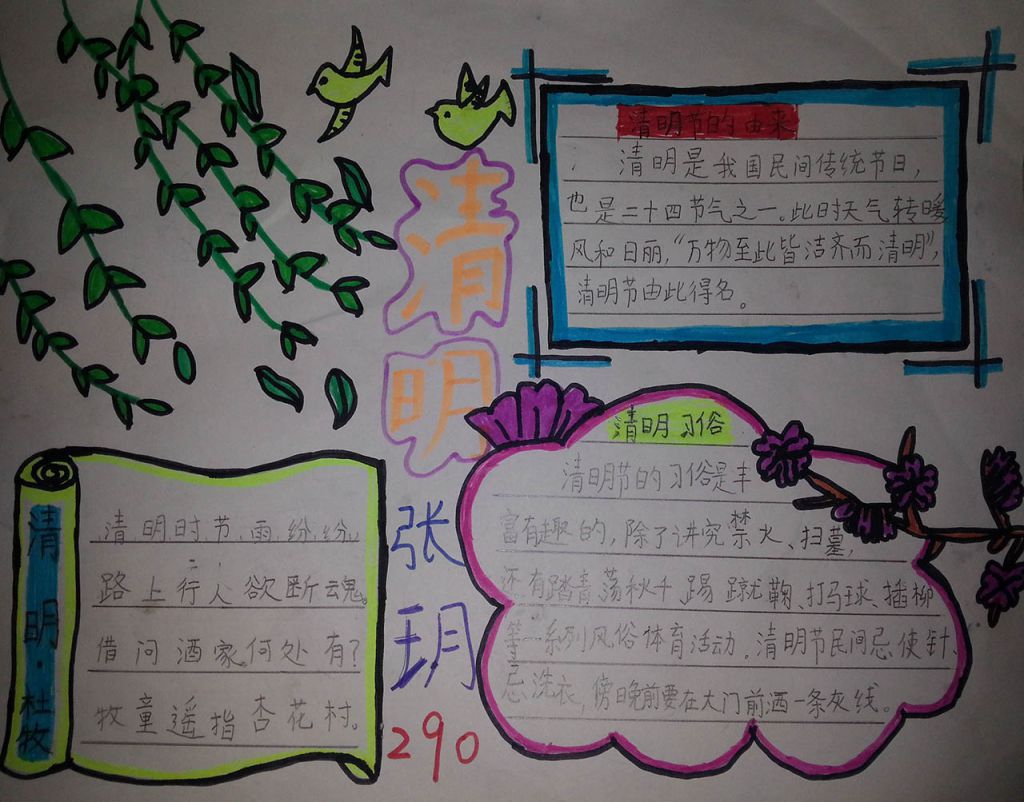 清明
张玥
290
清明节的由来
清明是我国民间传统节日,
也是二十四节气之一。此时天气转暖
风和日丽,“万物至此皆洁齐而清明”,
清明节由此得名。
清明·杜牧
清明时节雨纷纷,
路上行人欲断魂。
借问酒家何处有?
牧童遥指杏花村。
清明习俗
清明节的习俗是丰
富有趣的,除了讲究禁火、扫墓,
还有踏青荡秋千、踢蹴鞠、打马球、插柳
等一系列风俗体育活动。清明节民间忌使针、
忌洗衣,傍晚前要在大门前洒一条灰线。